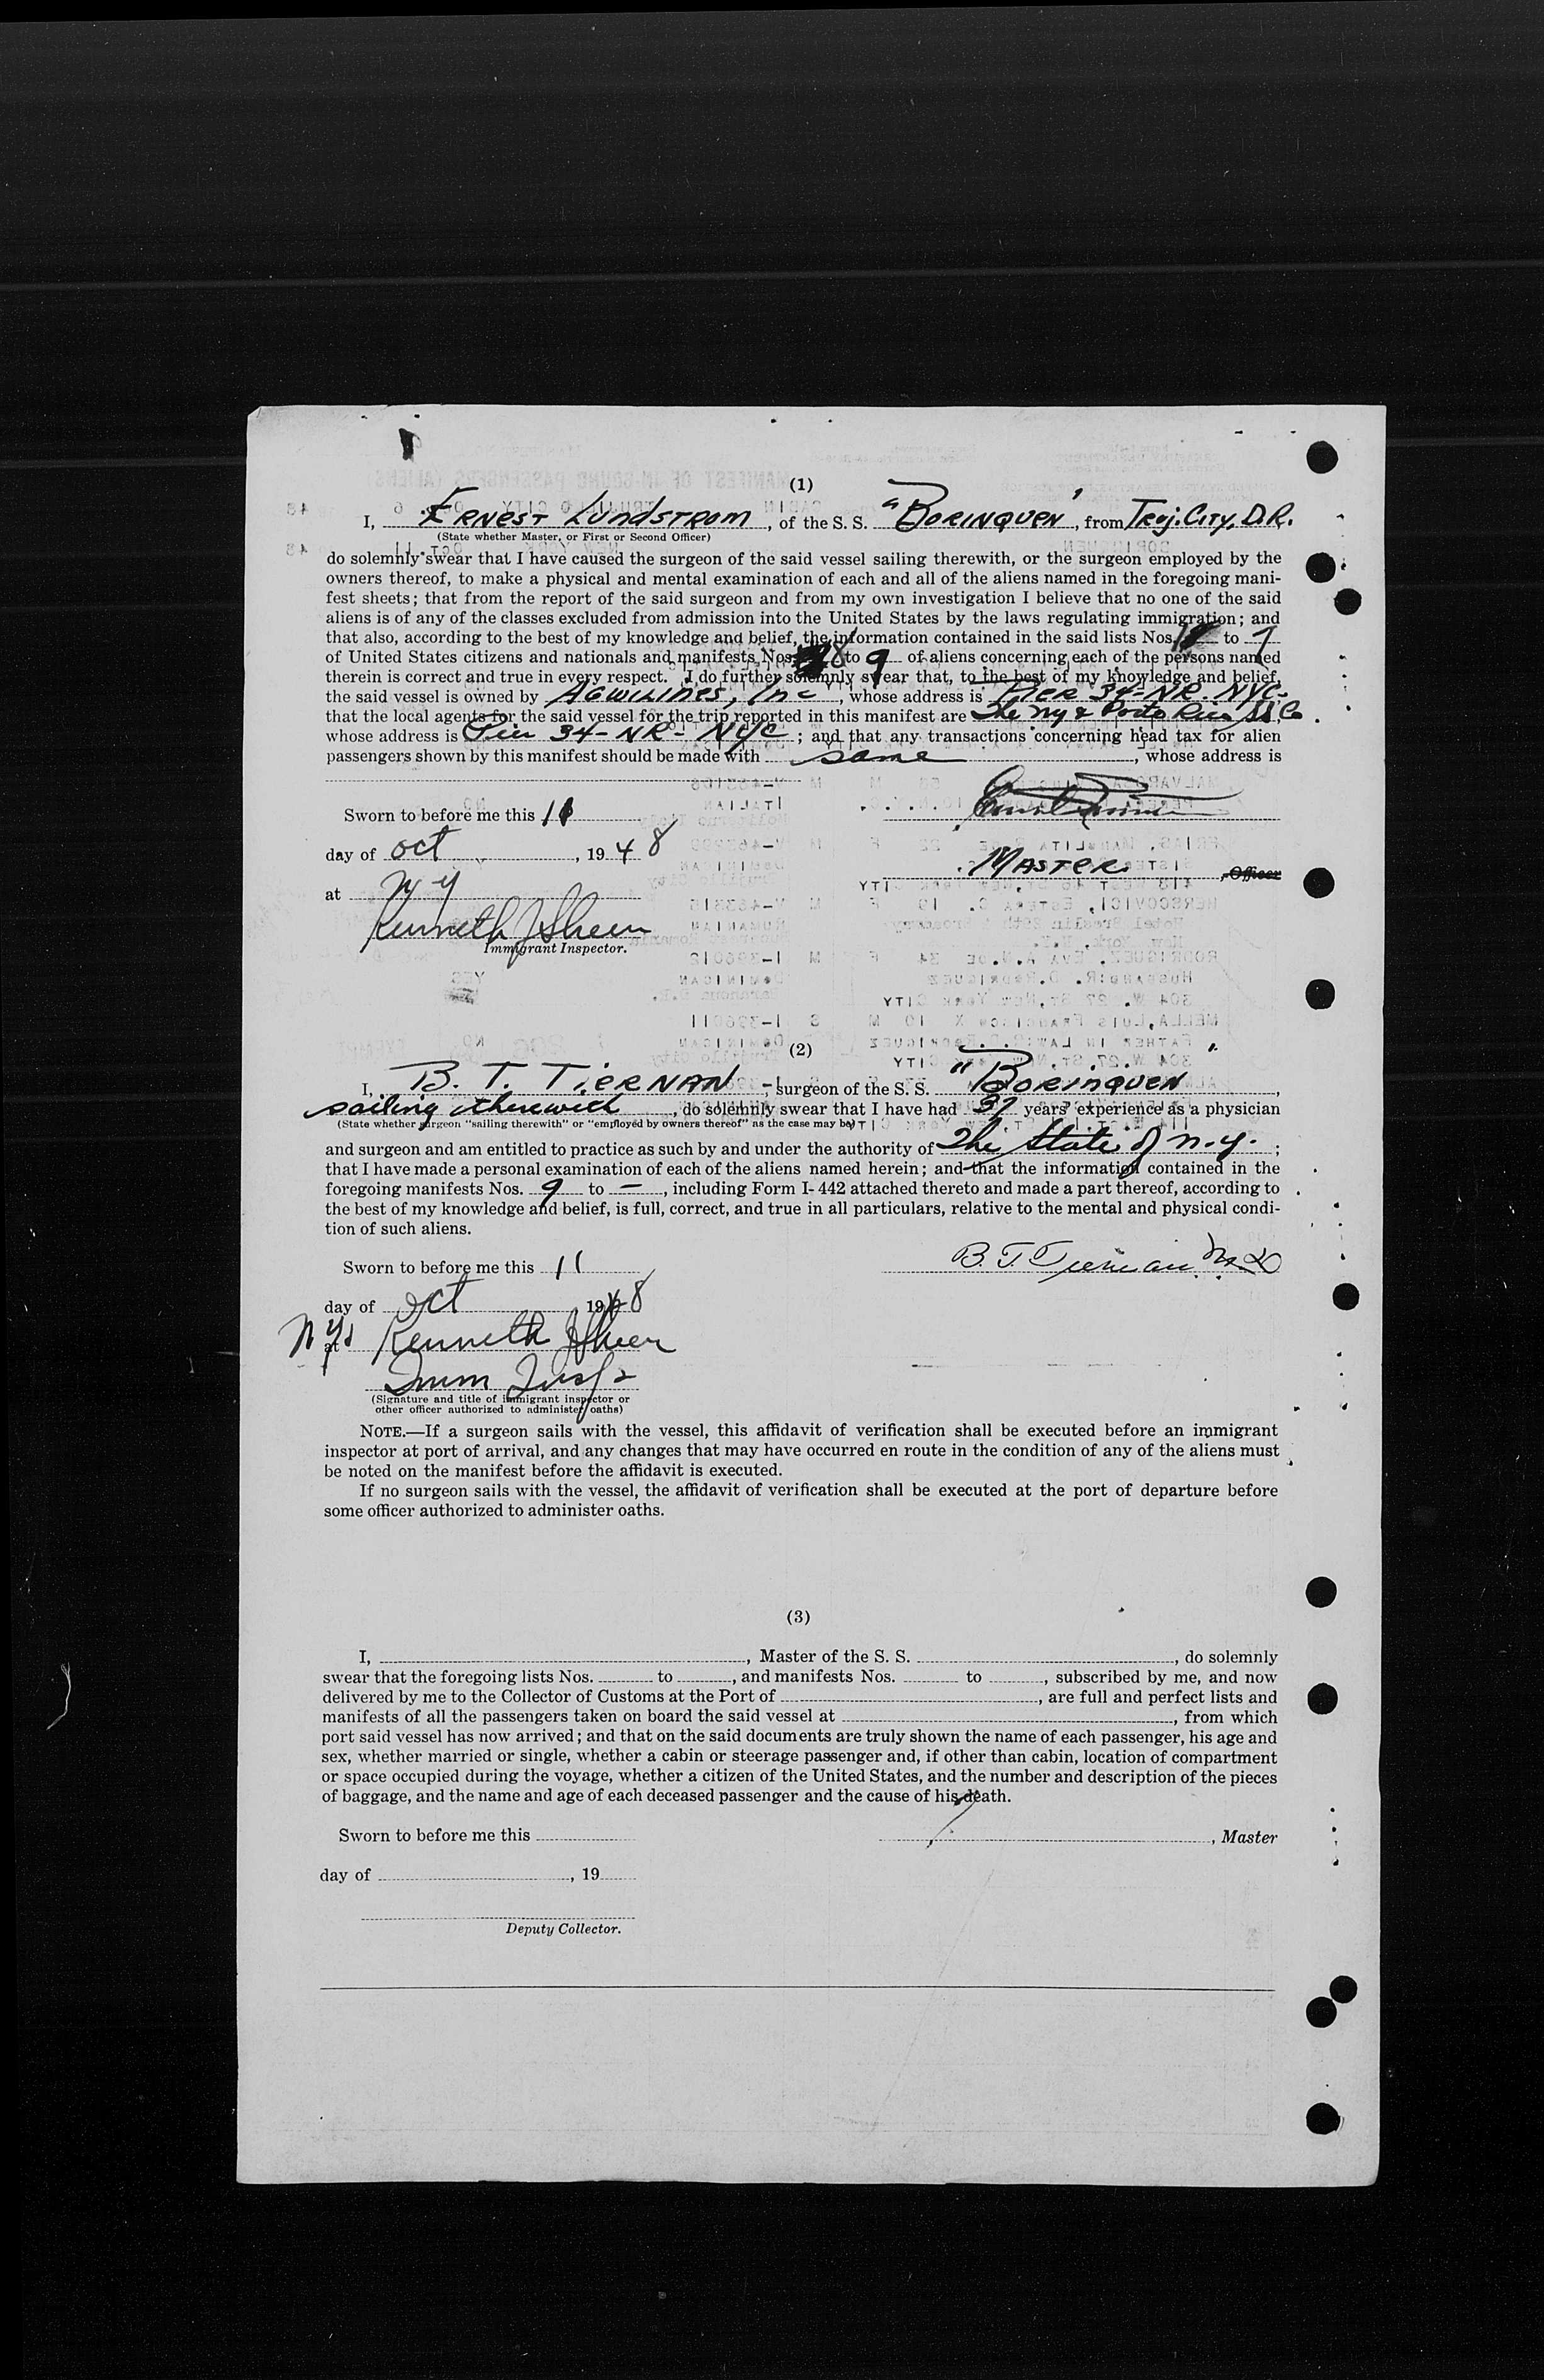 (1)
I, Ernest Lundstrom, of the S. S. "Borinquen", from Truj. City, D.R.
(State whether Master, or First or Second Officer)
do solemnly swear that I have caused the surgeon of the said vessel sailing therewith, or the surgeon employed by the
owners thereof, to make a physical and mental examination of each and all of the aliens named in the foregoing mani-
fest sheets; that from the report of the said surgeon and from my own investigation I believe that no one of the said
aliens is of any of the classes excluded from admission into the United States by the laws regulating immigration; and
that also, according to the best of my knowledge and belief, the information contained in the said lists Nos. 1 to 7
of United States citizens and nationals and manifests Nos. 8 to 9 of aliens concerning each of the persons named
therein is correct and true in every respect. I do further solemnly swear that, to the best of my knowledge and belief,
the said vessel is owned by Agwilines, Inc, whose address is Pier 34-NR-NYC-
that the local agents for the said vessel for the trip reported in this manifest are The NY & Porto Rico SS Co
whose address is Pier 34-NR-NYC; and that any transactions concerning head tax for alien
passengers shown by this manifest should be made with same, whose address is
Sworn to before me this 11
day of Oct, 1948
Master, Officer
at NY
Kenneth J Sheer
Immigrant Inspector.
(2)
I, B. T. Tiernan, surgeon of the S. S. "Borinquen",
sailing therewith, do solemnly swear that I have had 37 years' experience as a physician
(State whether surgeon "sailing therewith" or "employed by owners thereof" as the case may be)
and surgeon and am entitled to practice as such by and under the authority of The State of N.Y.;
that I have made a personal examination of each of the aliens named herein; and that the information contained in the
foregoing manifests Nos. 9 to —, including Form I-442 attached thereto and made a part thereof, according to
the best of my knowledge and belief, is full, correct, and true in all particulars, relative to the mental and physical condi-
tion of such aliens.
Sworn to before me this 11
B. T. Tiernan M.D
day of Oct 1948
at NY Kenneth J Sheer
Imm Insp
(Signature and title of immigrant inspector or
other officer authorized to administer oaths)
NOTE.—If a surgeon sails with the vessel, this affidavit of verification shall be executed before an immigrant
inspector at port of arrival, and any changes that may have occurred en route in the condition of any of the aliens must
be noted on the manifest before the affidavit is executed.
If no surgeon sails with the vessel, the affidavit of verification shall be executed at the port of departure before
some officer authorized to administer oaths.
(3)
I, , Master of the S. S. , do solemnly
swear that the foregoing lists Nos. to , and manifests Nos. to , subscribed by me, and now
delivered by me to the Collector of Customs at the Port of , are full and perfect lists and
manifests of all the passengers taken on board the said vessel at , from which
port said vessel has now arrived; and that on the said documents are truly shown the name of each passenger, his age and
sex, whether married or single, whether a cabin or steerage passenger and, if other than cabin, location of compartment
or space occupied during the voyage, whether a citizen of the United States, and the number and description of the pieces
of baggage, and the name and age of each deceased passenger and the cause of his death.
Sworn to before me this
, Master
day of , 19
Deputy Collector.